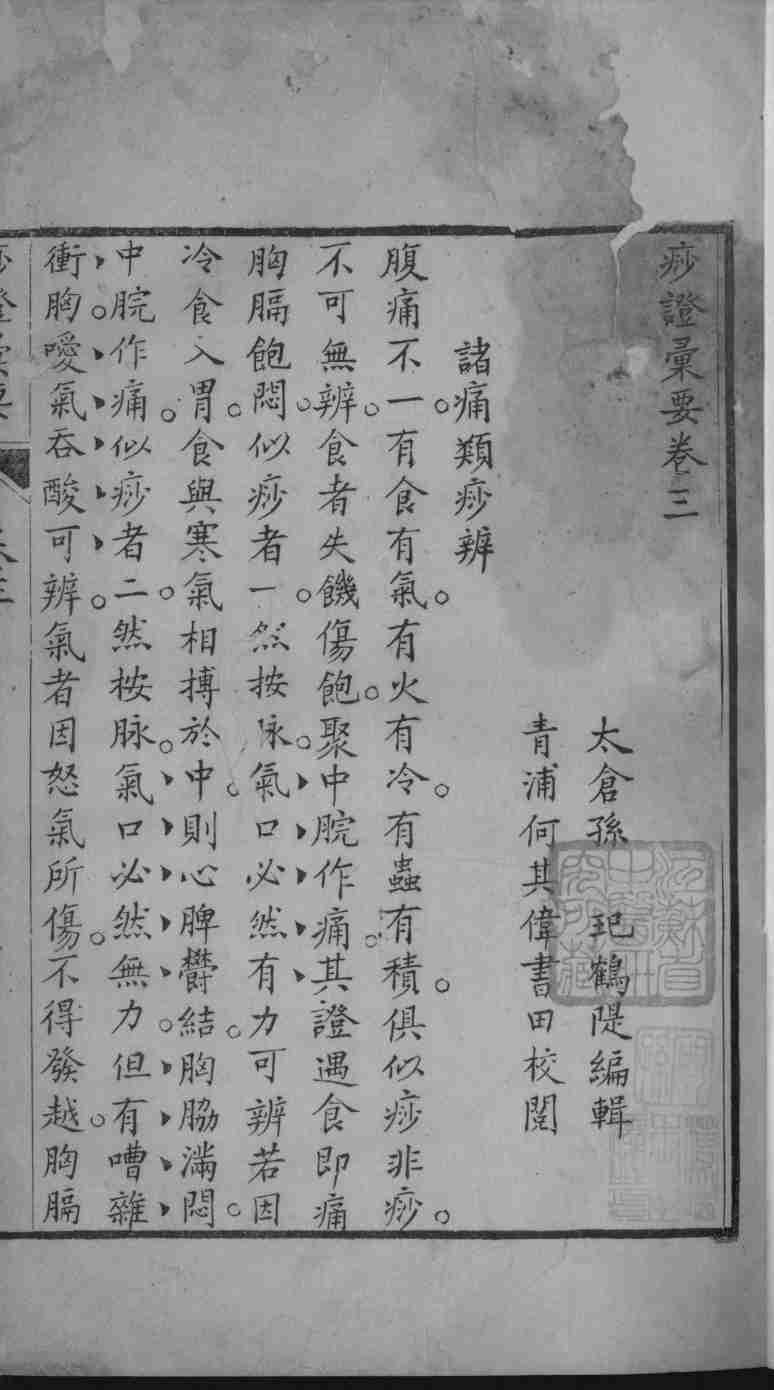 痧證彙要卷三
太倉孫 玘鶴隄編輯
青浦何其偉書田校閱
諸痛類痧辨
腹痛不一。有食有氣。有火有冷。有蟲有積。俱似痧非痧。
不可無辨。食者失饑傷飽。聚中脘作痛。其證遇食即痛
胸膈飽悶。似痧者一。然按脉。氣口必然有力可辨若因
冷食入胃。食與寒氣相搏於中。則心脾欝結。胸脇滿悶。
中脘作痛。似痧者二。然按脉。氣口必然無力。但有嘈雜
衝胸。噯氣吞酸可辨。氣者因怒氣所傷。不得發越。胸膈
痧證彙要
卷三
江蘇省